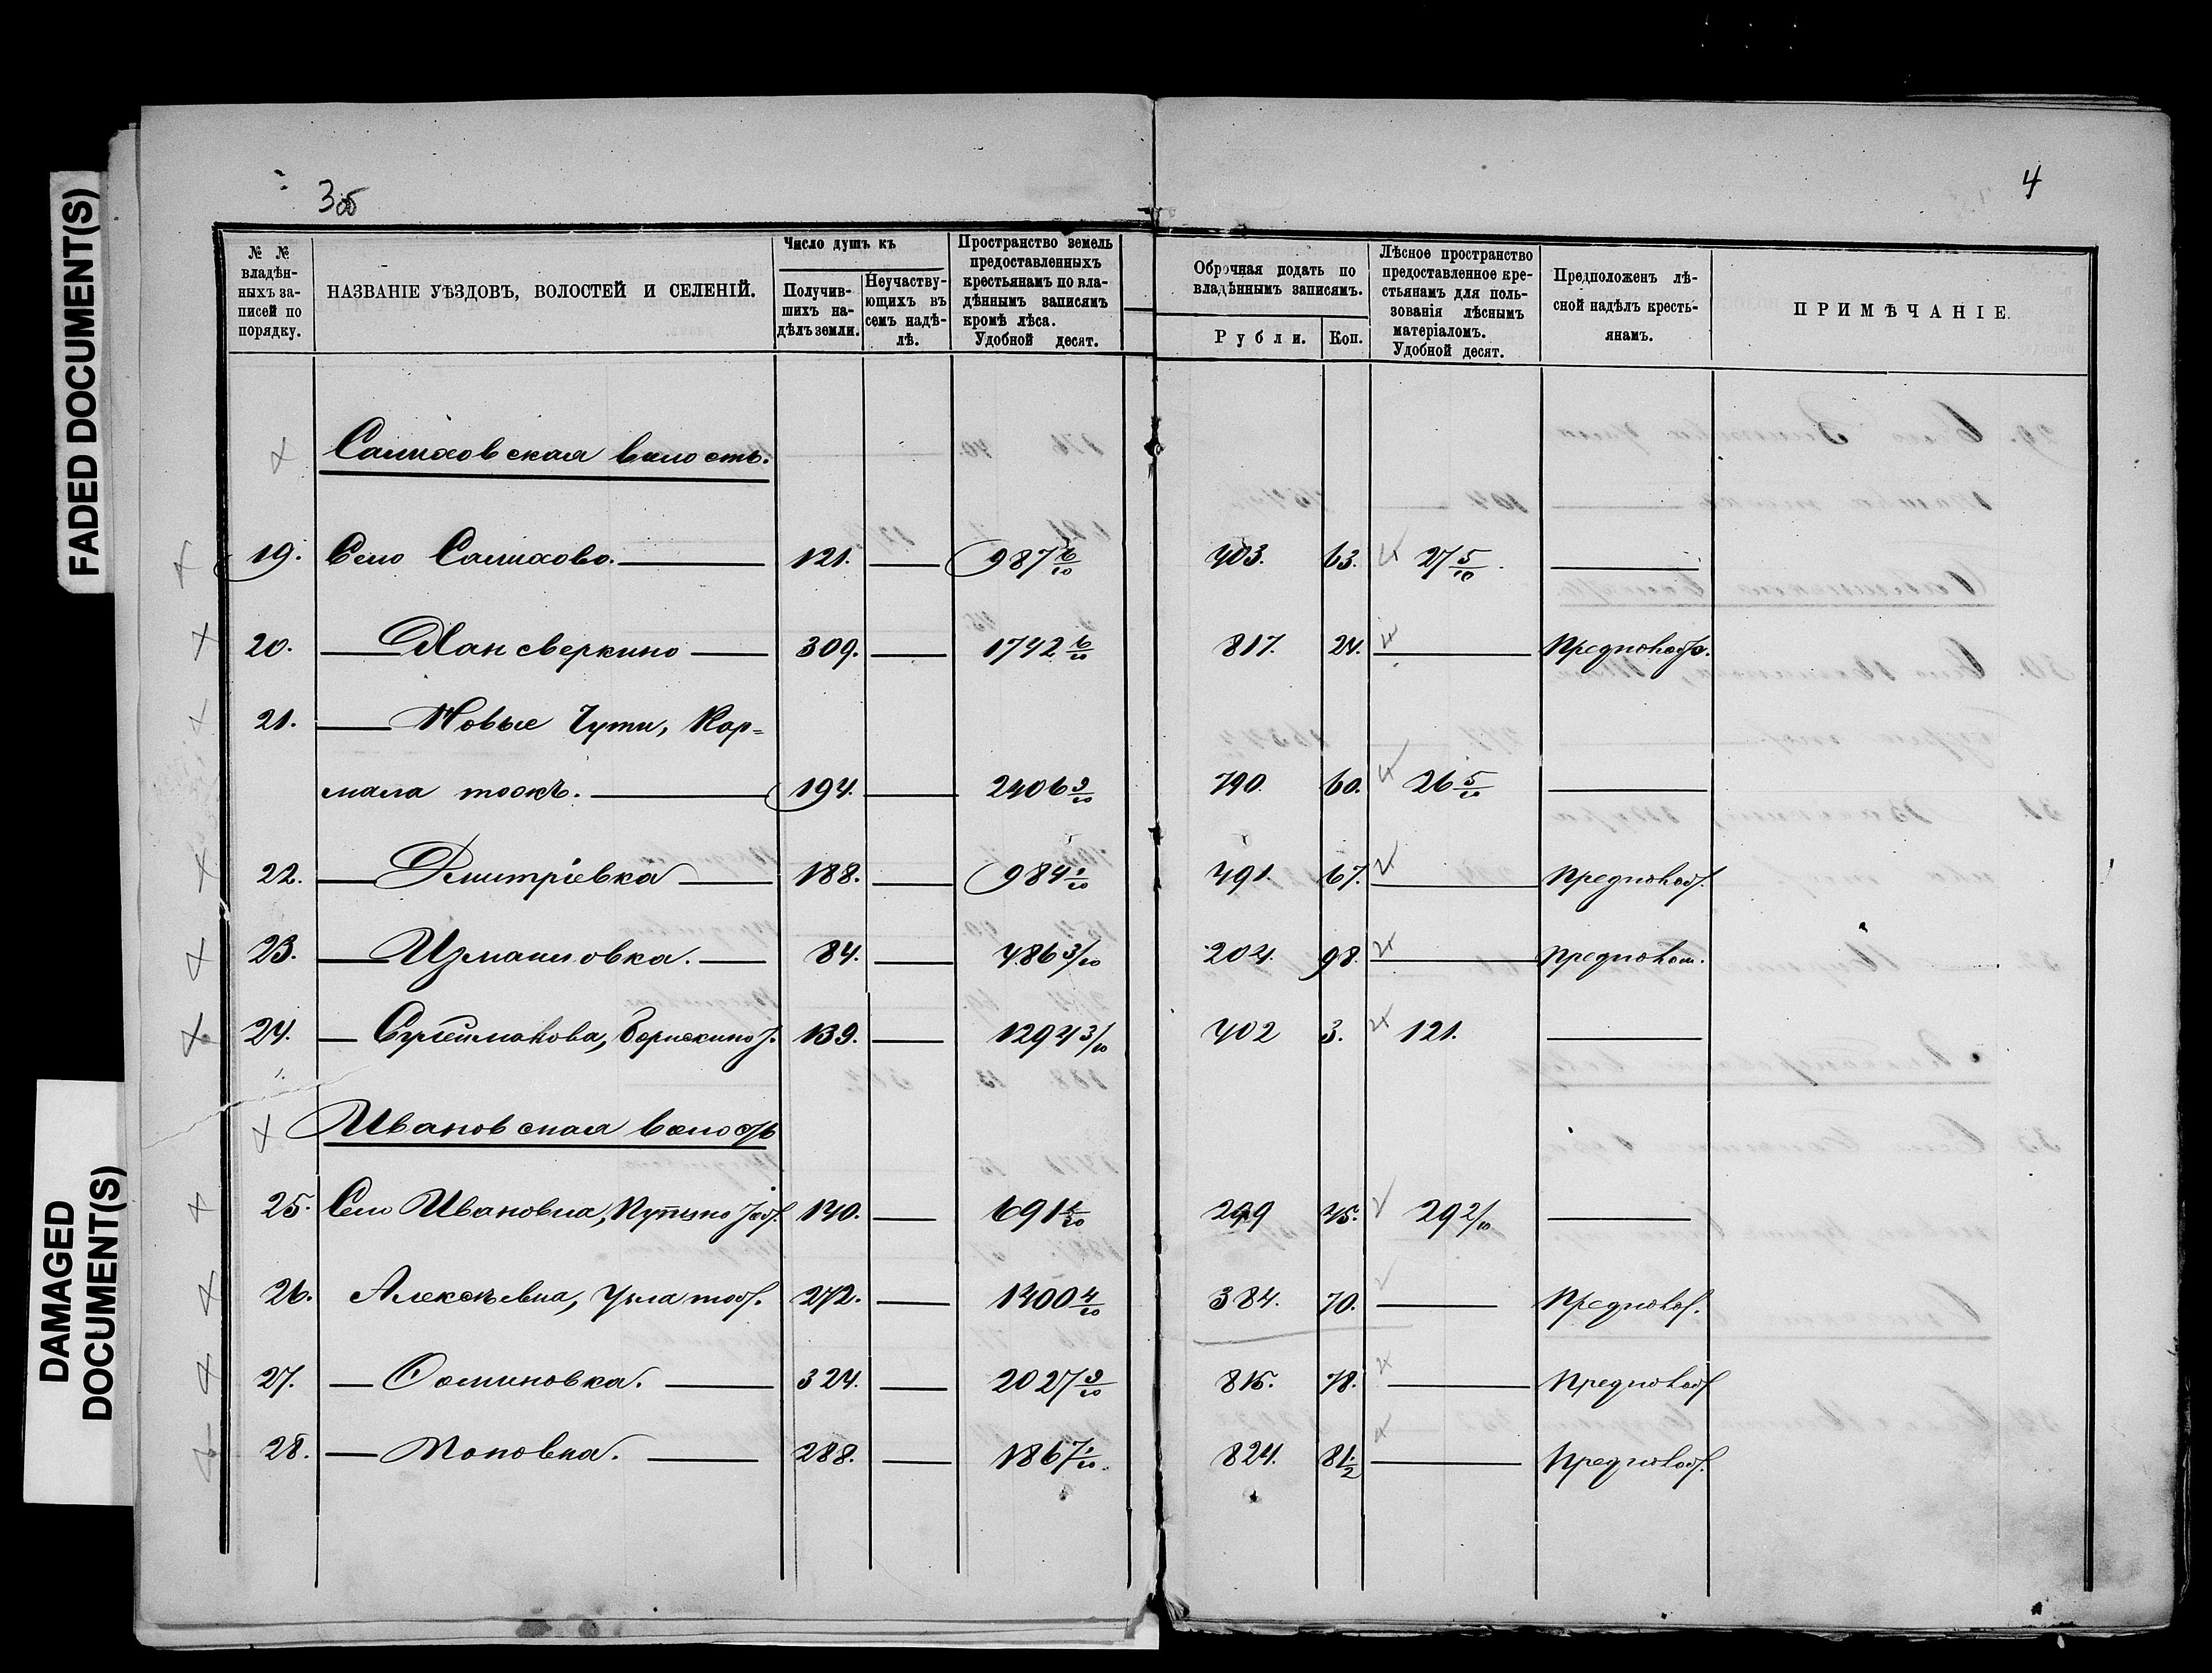 FADED DOCUMENT(S)
DAMAGED
DOCUMENT(S)
3об
4
№ №
владѣн-
ныхъ за-
писей по
порядку.
НАЗВАНІЕ УѢЗДОВЪ, ВОЛОСТЕЙ И СЕЛЕНІЙ.
Число душъ къ
Получив-
шихъ на-
дѣлъ земли.
Неучаству-
ющихъ въ
семъ надѣ-
лѣ.
Пространство земель
предоставленныхъ
крестьянамъ по вла-
дѣннымъ записямъ
кромѣ лѣса.
Удобной десят.
Оброчная подать по
владѣннымъ записямъ.
Рубли. Коп.
Лѣсное пространство
предоставленное кре-
стьянамъ для поль-
зованія лѣснымъ
матеріаломъ.
Удобной десят.
Предположенъ лѣ-
сной надѣлъ кресть-
янамъ.
ПРИМѢЧАНІЕ.
Салиховская волость.
19. Село Салихово. 121. 987 6/10 403. 63. 27 5/10
20. Хансверкино 309. 1742 6/10 817. 24.
21. — Новые Чути, Кор=
мала тожъ. 194. 2406 9/10 790. 60. 26 5/10
22. — Дмитріевка 188. 984 1/10 491. 67.
23. — Измаиловка. 84. 486 3/10 204. 98.
24. — Сулеймонова, 139. 1294 3/10 402 3. 121.
Ивановская волость
25. Село Ивановка, 140. 691 4/10 299 45. 29 2/10
26. Алексѣевка, 272. 1400 4/10 384. 70.
27. — Соминовка. 324. 2027 9/10 815. 78.
28. — Поповка. 288. 1867 1/10 824. 81 1/2